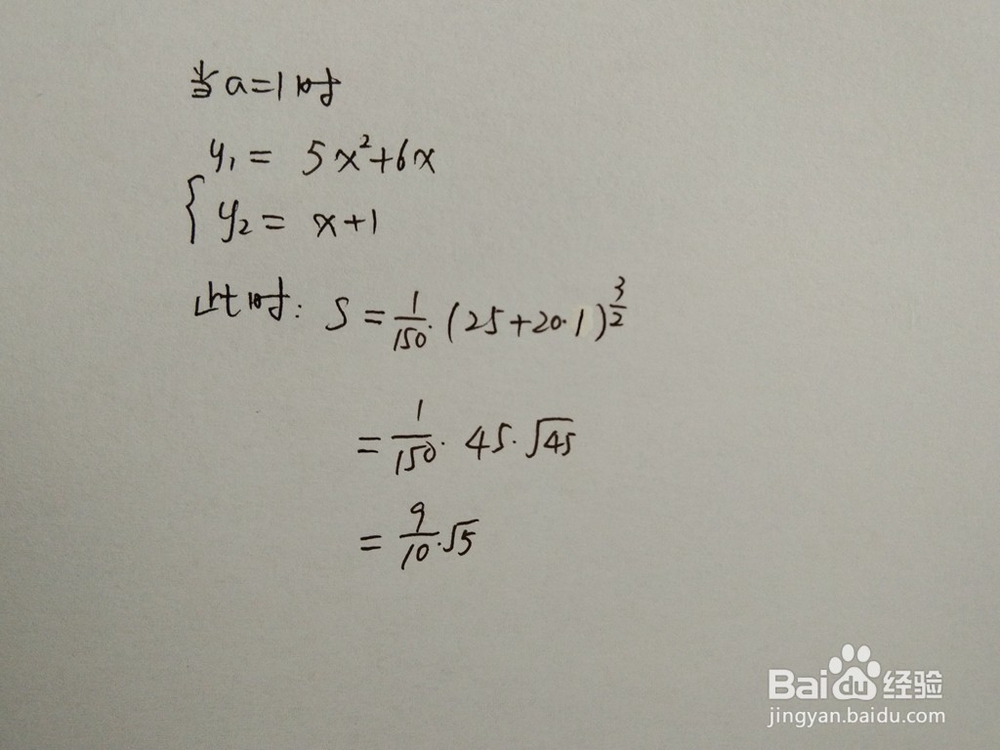 当a=1时
y₁ = 5x²+6x
{ y₂ = x+1
此时: S = 1/150·(25+20·1)^(3/2)
= 1/150·45·√45
= 9/10·√5
Baidu经验
jingyan.baidu.com